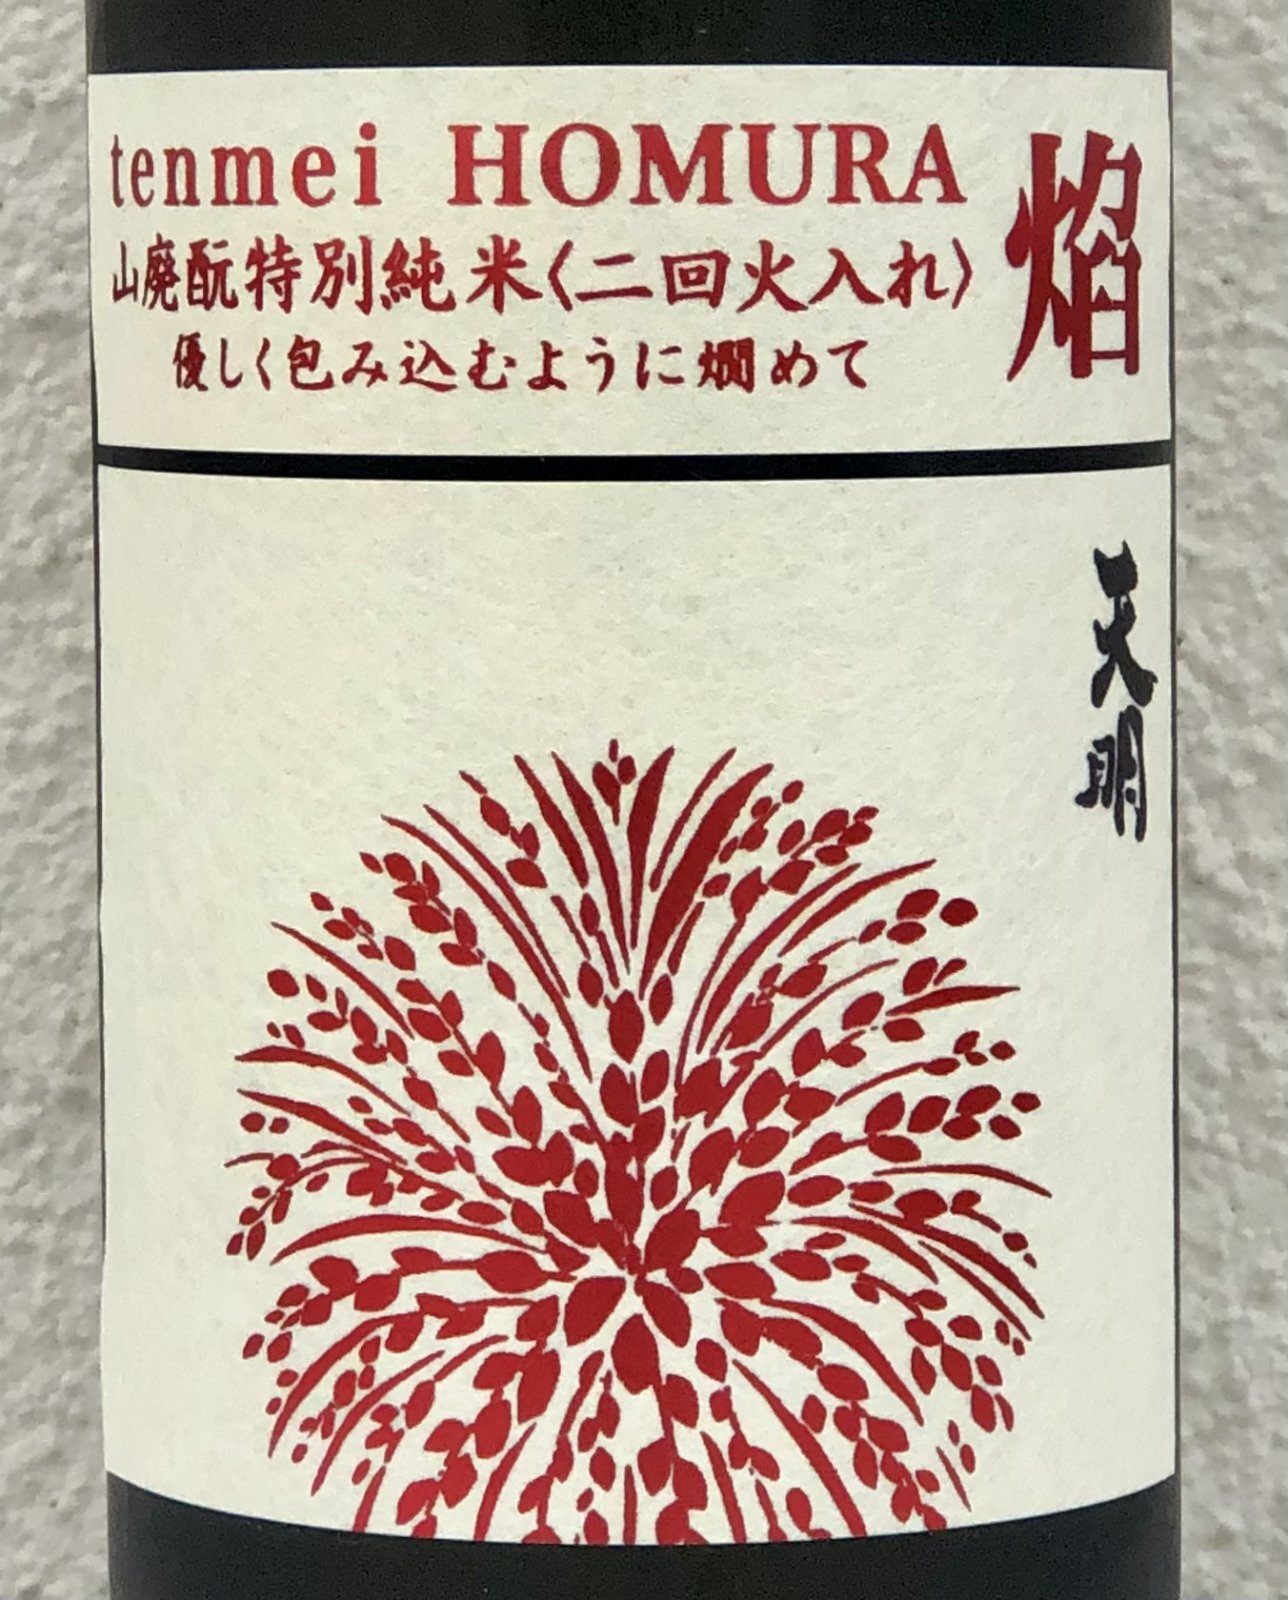 tenmei HOMURA
焰
山廃酛特別純米〈二回火入れ〉
優しく包み込むように燗めて
天明